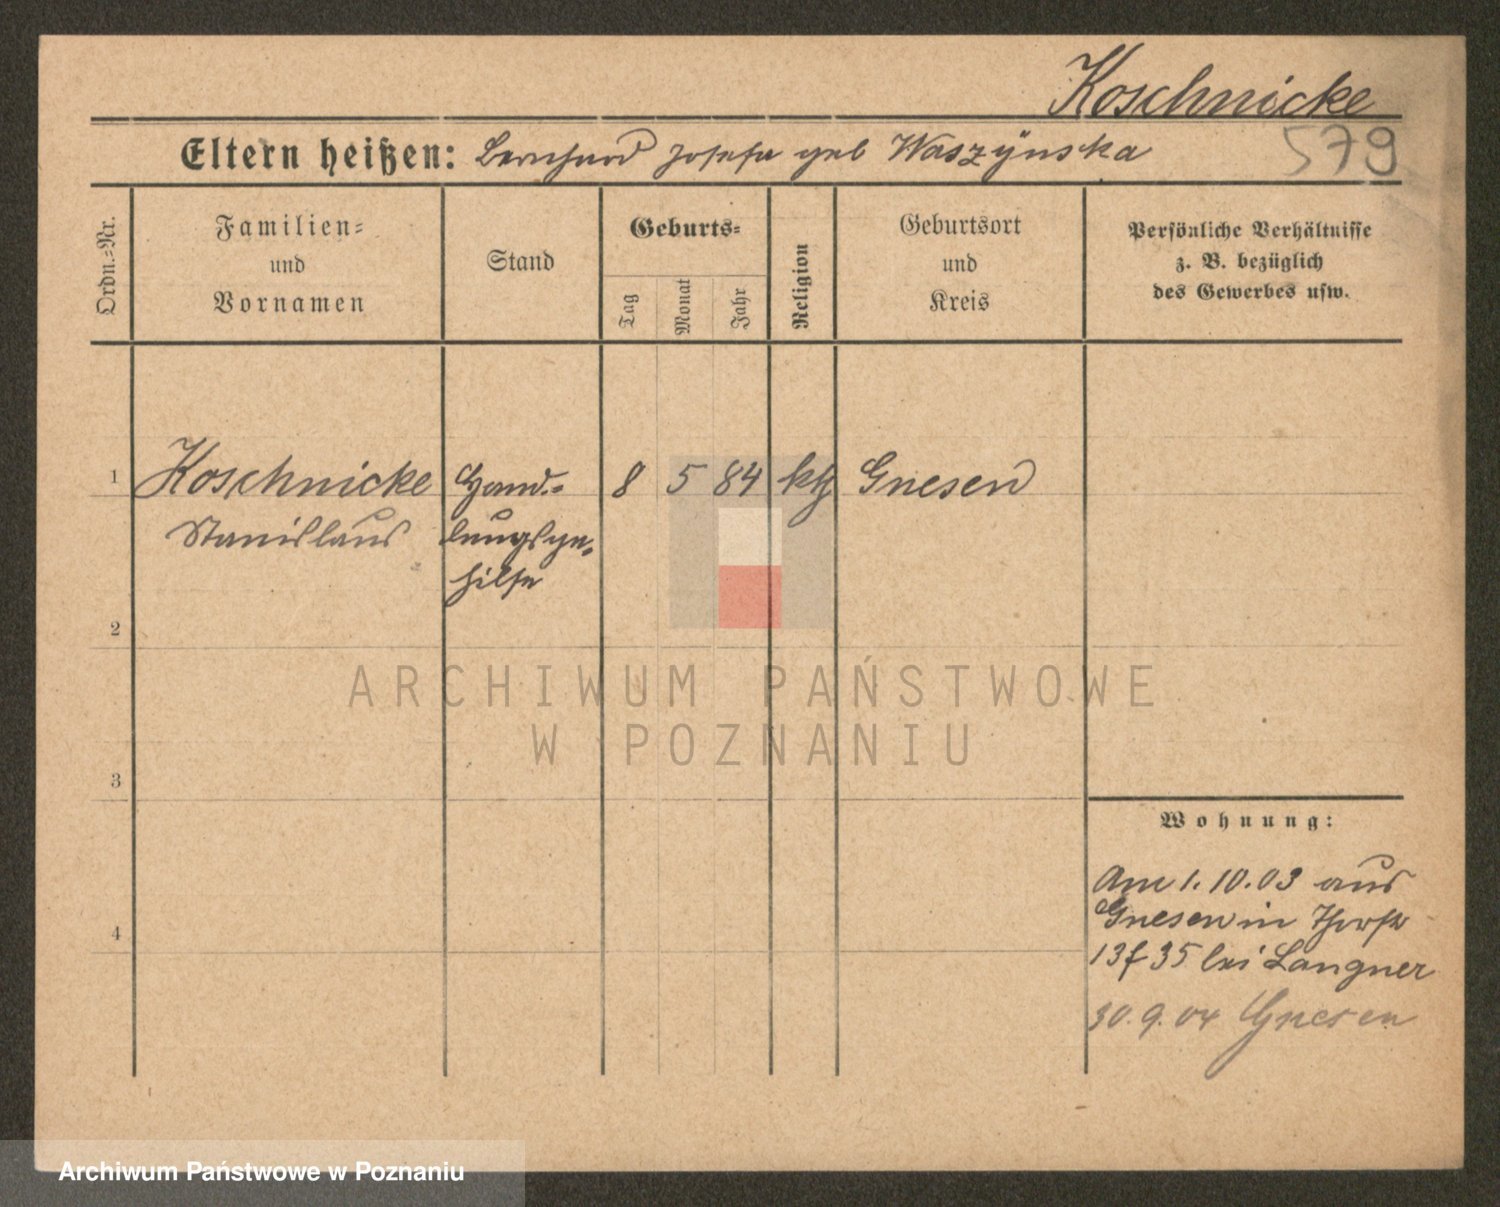 Koschnicke
579
Eltern heißen: Bernhard Josefa geb Waszÿnska
Ordn.-Nr.
Familien-
und
Vornamen
Stand
Geburts-
Tag
Monat
Jahr
Religion
Geburtsort
und
Kreis
Persönliche Verhältnisse
z. B. bezüglich
des Gewerbes usw.
1 Koschnicke Hand.- 8 5 84 kth Gnesen
Stanislaus lungsge-
hilfe
2
ARCHIWUM PAŃSTWOWE
W POZNANIU
3
Wohnung:
Am 1.10.03 aus
4
Gnesen in
13 f 35 bei Langner
30.9.04 Gnesen
Archiwum Państwowe w Poznaniu